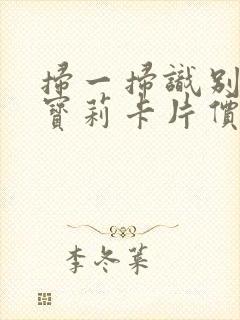 掃一掃識別
寶莉卡片價
李冬葉